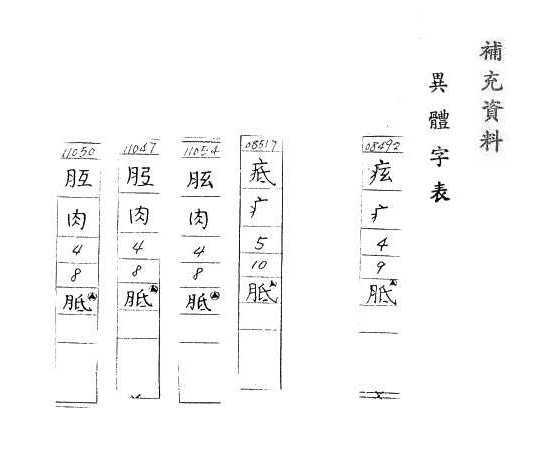 補充資料
異體字表
08492
疒
4
9
胝
08517
疷
疒
5
10
胝
11054
肉
4
8
胝
11047
肉
4
8
胝
11050
肉
4
8
胝